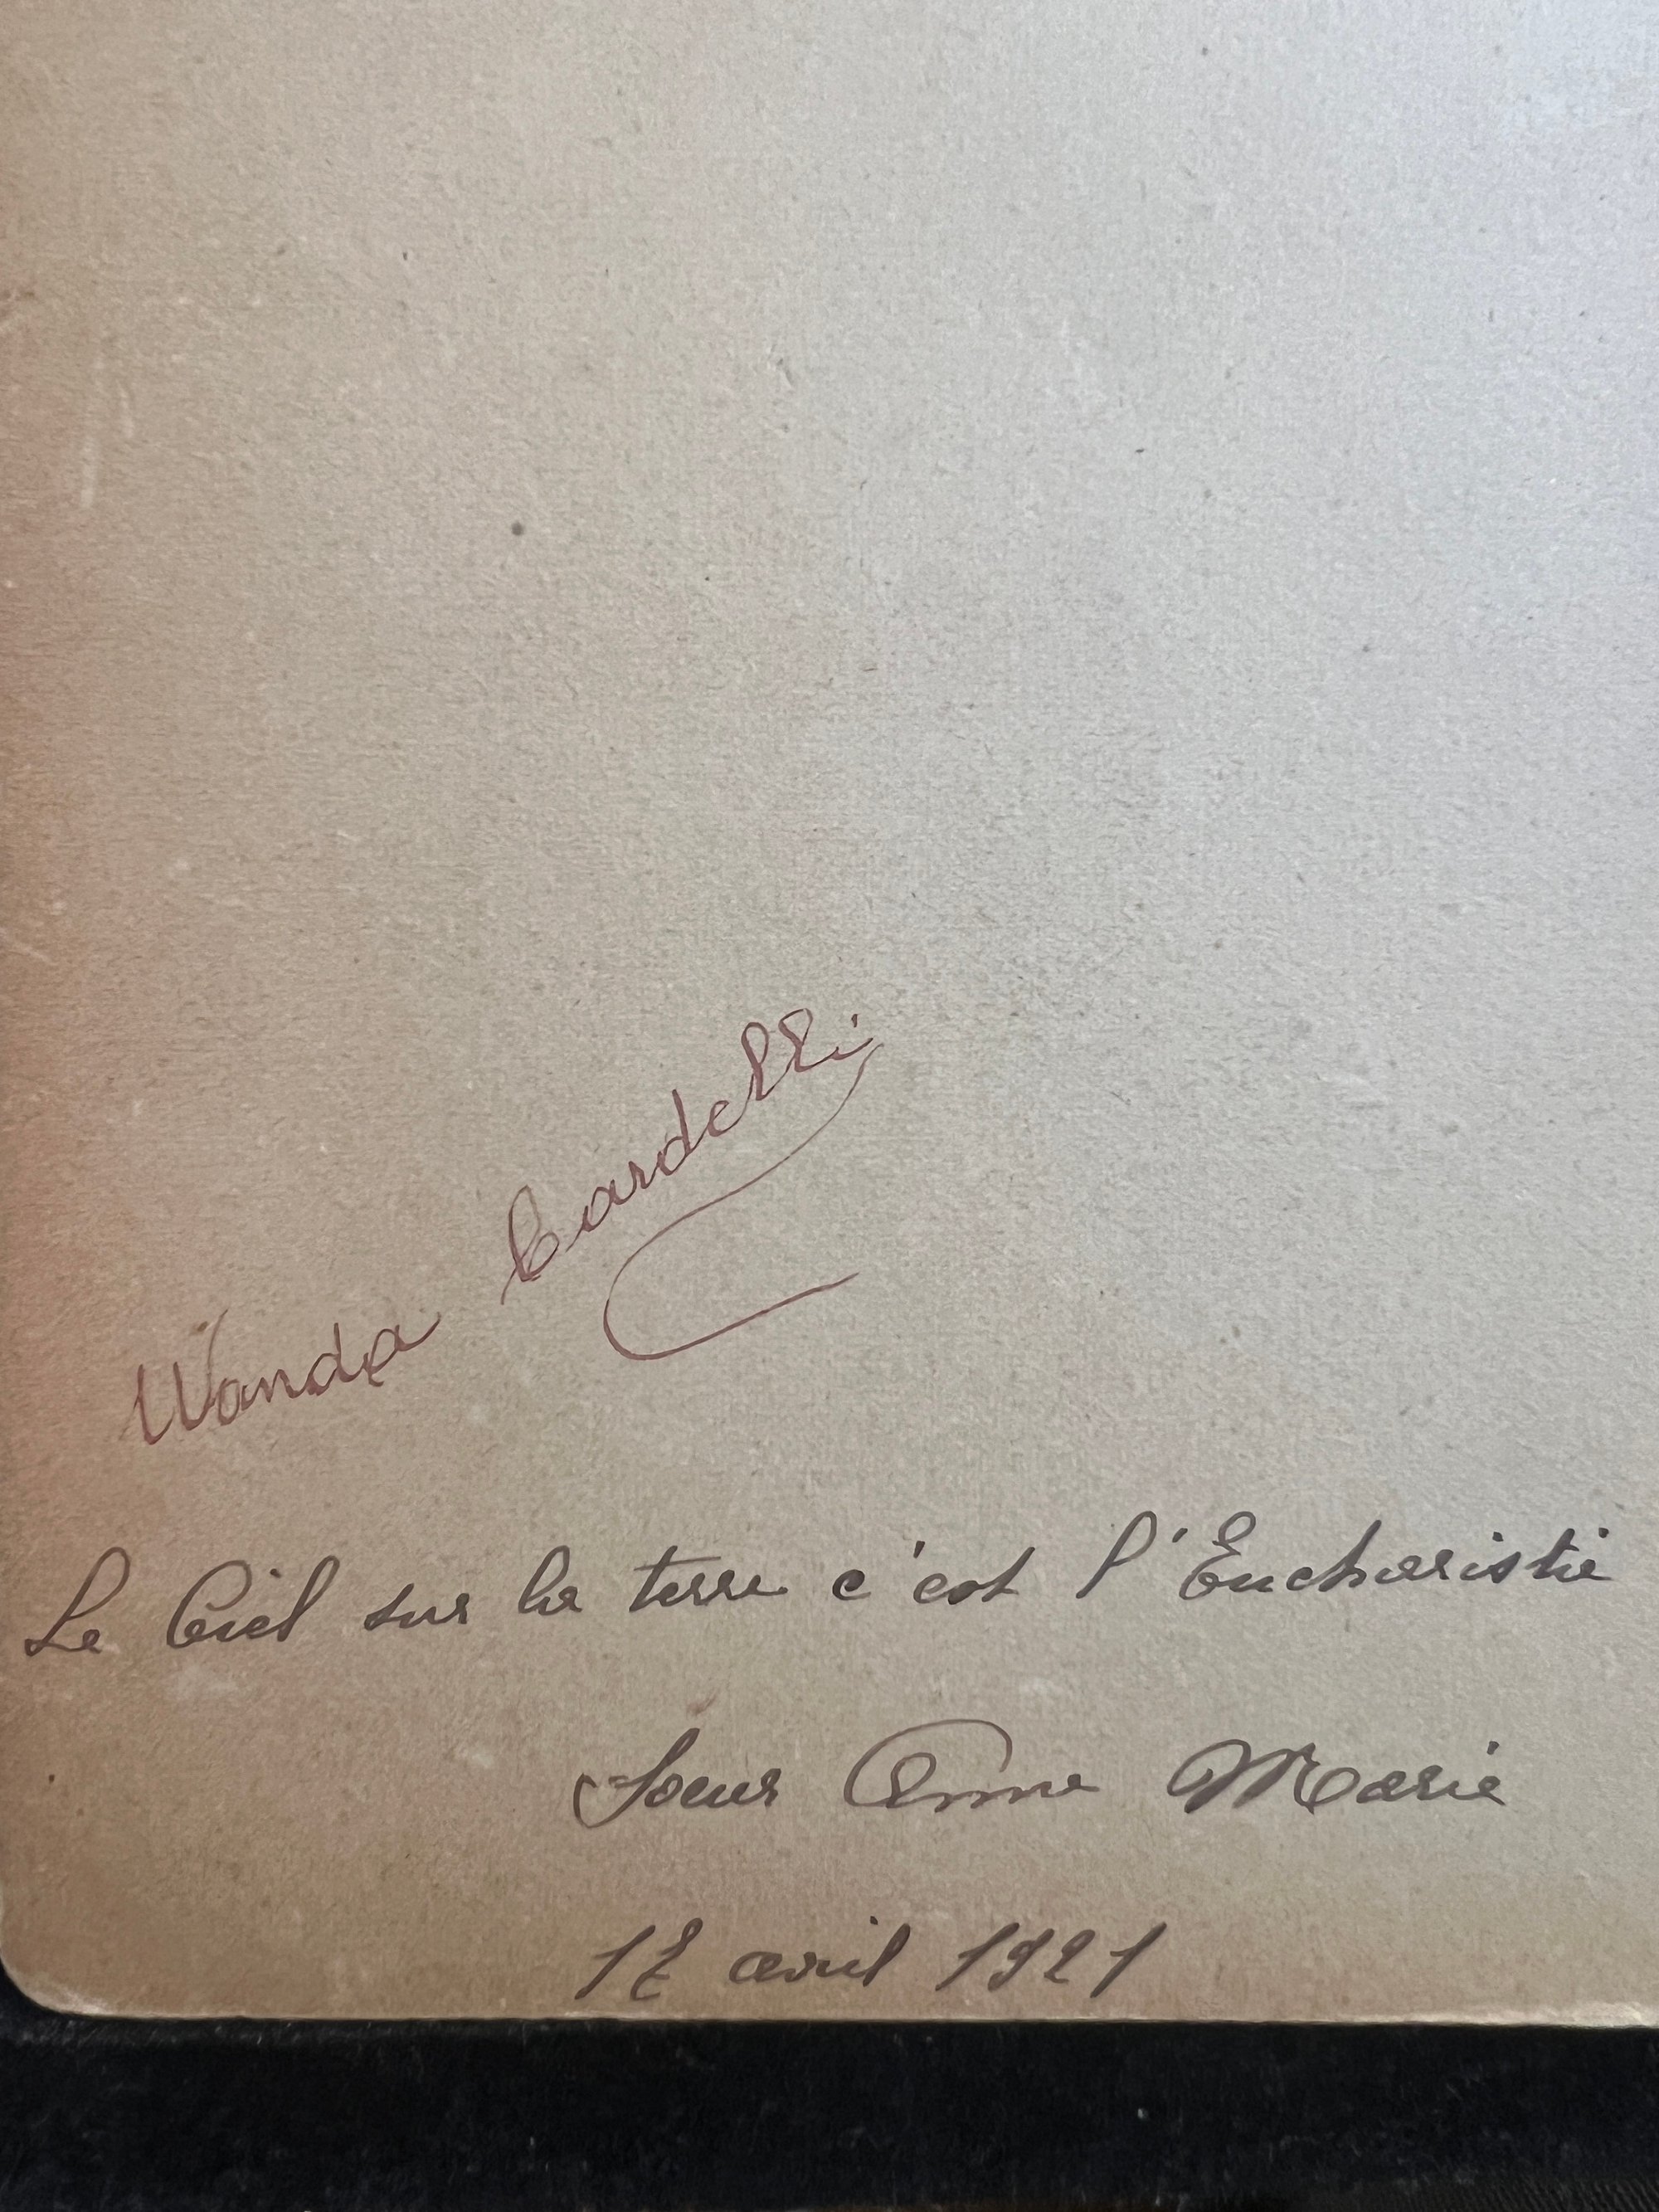 Wanda Cardelli
Le Ciel sur la terre c'est l'Eucharistie
Soeur Anne Marie
17 avril 1921